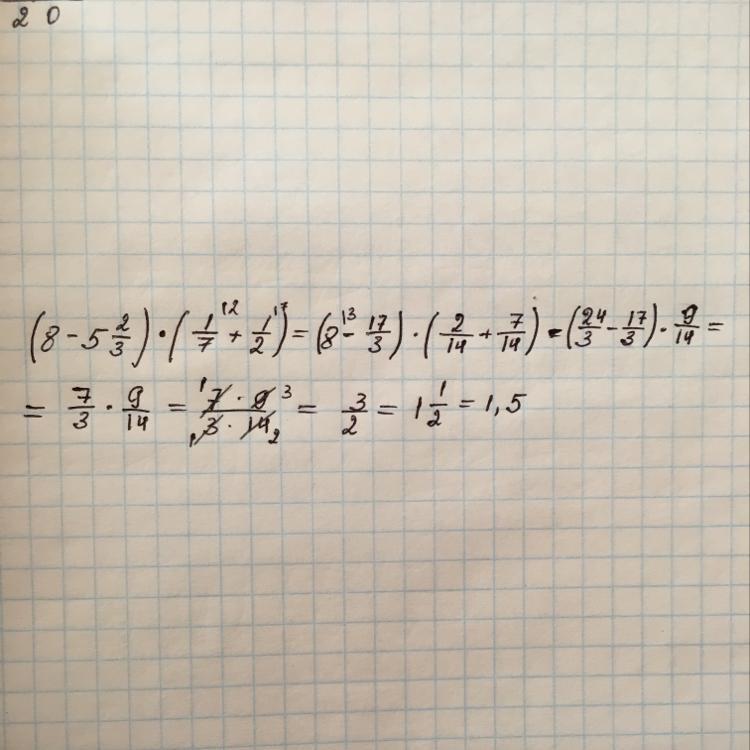 2 0
(8 - 5 2/3) · (1/7 ^{\2} + 1/2 ^{\7}) = (8 ^{\3} - 17/3) · (2/14 + 7/14) = (24/3 - 17/3) · 9/14 =
= 7/3 · 9/14 = ^1 7 · 9 ^3 / _1 3 · 14 _2 = 3/2 = 1 1/2 = 1,5